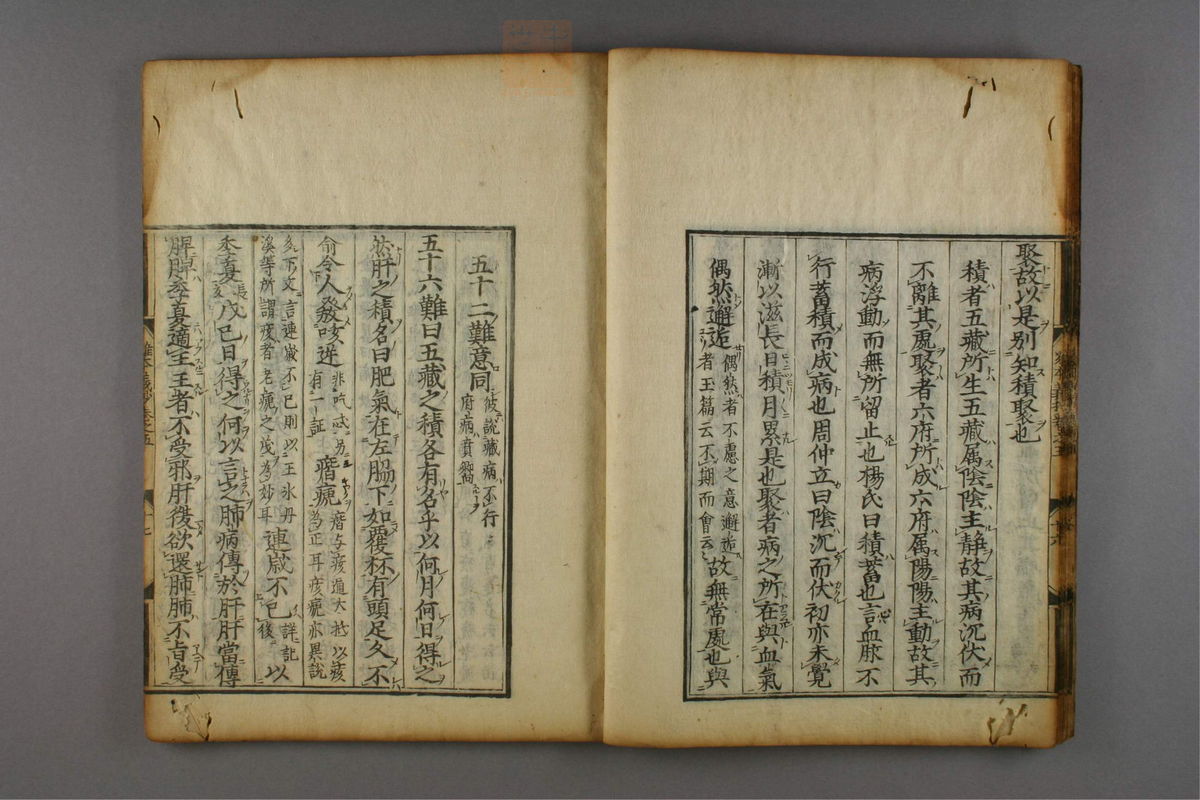 聚故以是別知積聚也
積者五藏所生五藏属陰陰主静故其病沉伏而
不離其處聚者六府所成六府属陽陽主動故其
病浮動而無所留止也楊氏曰積蓄也言血脉不
行蓄積而成病也周仲立曰陰沉而伏初亦未覺
漸以滋長日積月累是也聚者病之所在與血氣
偶然邂逅偶然者不慮之意邂逅者玉篇云不期而會云故無常處也與
五十二難意同彼説藏病不行府病賁嚮
五十六難曰五藏之積各有名乎以何月何日得之
然肝之積名曰肥氣在左脇下如覆杯有頭足久不
愈令人發咳逆 有一証 痎瘧 痎瘧亦異説
連歳不已 以
季夏戊己日得之何以言之肺病傳於肝肝當傳
脾脾季夏適王王者不受邪肝復欲還肺肺不肯受